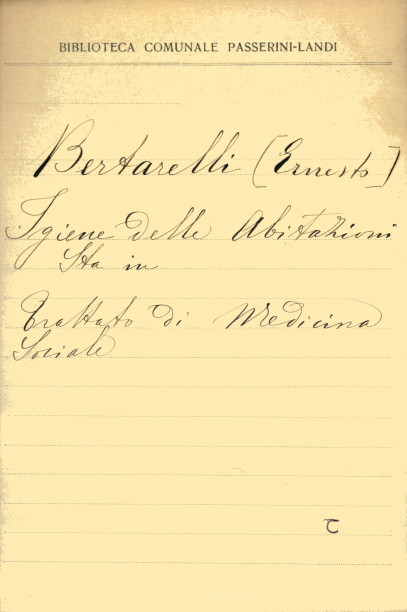 BIBLIOTECA COMUNALE PASSERINI-LANDI
Bertarelli [Ernesto]
Igiene delle Abitazioni
Sta in
Trattato di Medicina
Sociale